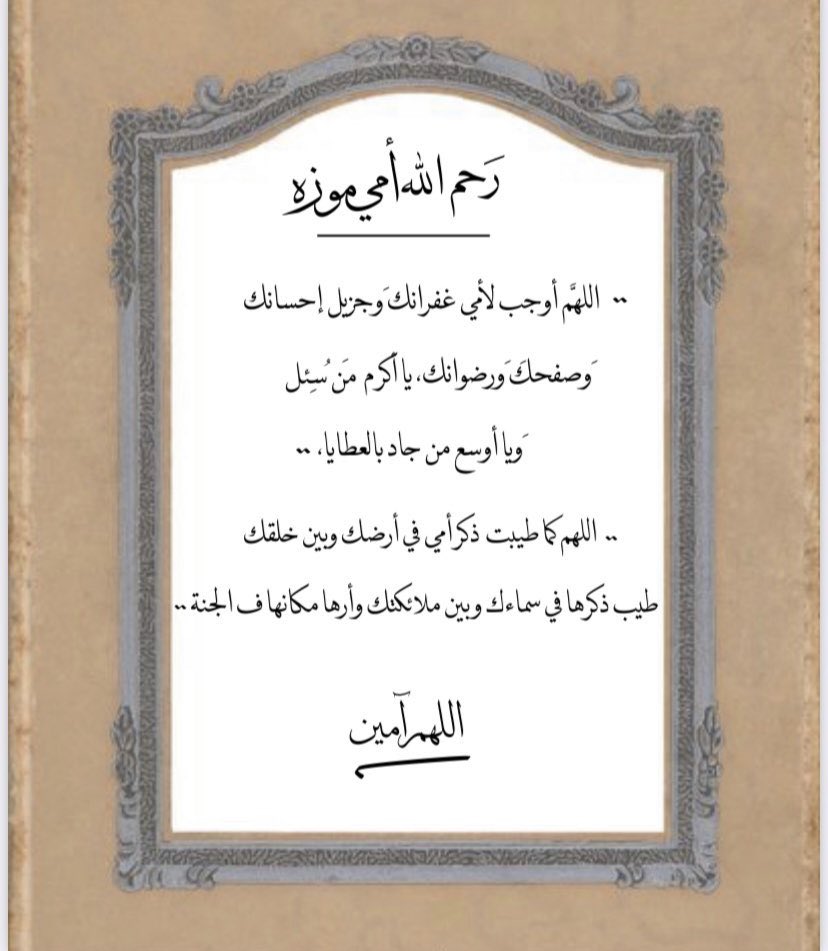 رَحم الله أمي موزه
•• اللهمَّ أوجب لأمي غفرانك َوجزيل إحسانك
َوصفحكَ َورضوانك، يا أكرم مَن سُئِل
َويا أوسع من جاد بالعطايا، ••
.. اللهم كما طيبت ذكر أمي في أرضك وبين خلقك
طيب ذكرها في سماءك وبين ملائكتك وأرها مكانها ف الجنة ••
اللهم آمين